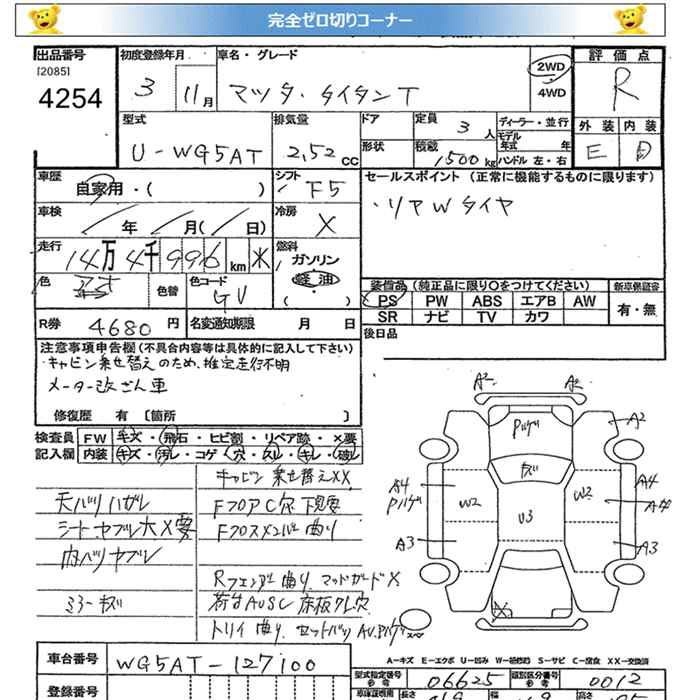 完全ゼロ切りコーナー
出品番号 初度登録年月 車名・グレード 評価点
[2085] 2WD
4254 3 11月 マツダ・タイタンT 4WD R
型式 排気量 ドア 定員 3 人 ディーラー・並行 外装 内装
モデル年式 年
U-WG5AT 2,52 cc 形状 積載 1500 kg ハンドル 左・右 E D
車歴 自家用・( ) シフト F5 セールスポイント (正常に機能するものに限ります)
車検 年 月( 日) 冷房 X ・リヤWタイヤ
走行 14万4千996 km 燃料 ガソリン 軽油
色 色替 色コード GV 装備品 (純正品に限り○をつけてください) 新車保証書
PS PW ABS エアB AW 有・無
R券 4680 円 名変通知期限 月 日 SR ナビ TV カワ
後日品
注意事項申告欄 (不具合内容等は具体的に記入して下さい)
キャビン乗せ替えのため、推定走行不明
メーター改ざん車
修復歴 有 〔箇所 〕
検査員 FW キズ・飛石・ヒビ割・リペア跡・×要
記入欄 内装 キズ・汚レ・コゲ・穴・スレ・キレ・破レ
キャビン乗せ替えXX
天バリハガレ FフロアC穴下見要
シートヤブレ大X要 Fフロスメンバー曲り
内バリヤブレ
Rフェンダー曲り、マッドガードX
ミラーキズ 荷台AUSC 床板クレ穴
トリイ曲り
A2 A2
A2
キズ
A4 W2 U3 W2 A4
A4
A3 A3
X
A-キズ E-エクボ U-凹み W-補修跡 S-サビ C-腐食 XX-交換済
車台番号 WG5AT-127100 型式指定番号 06625 類別区分番号 0012
登録番号